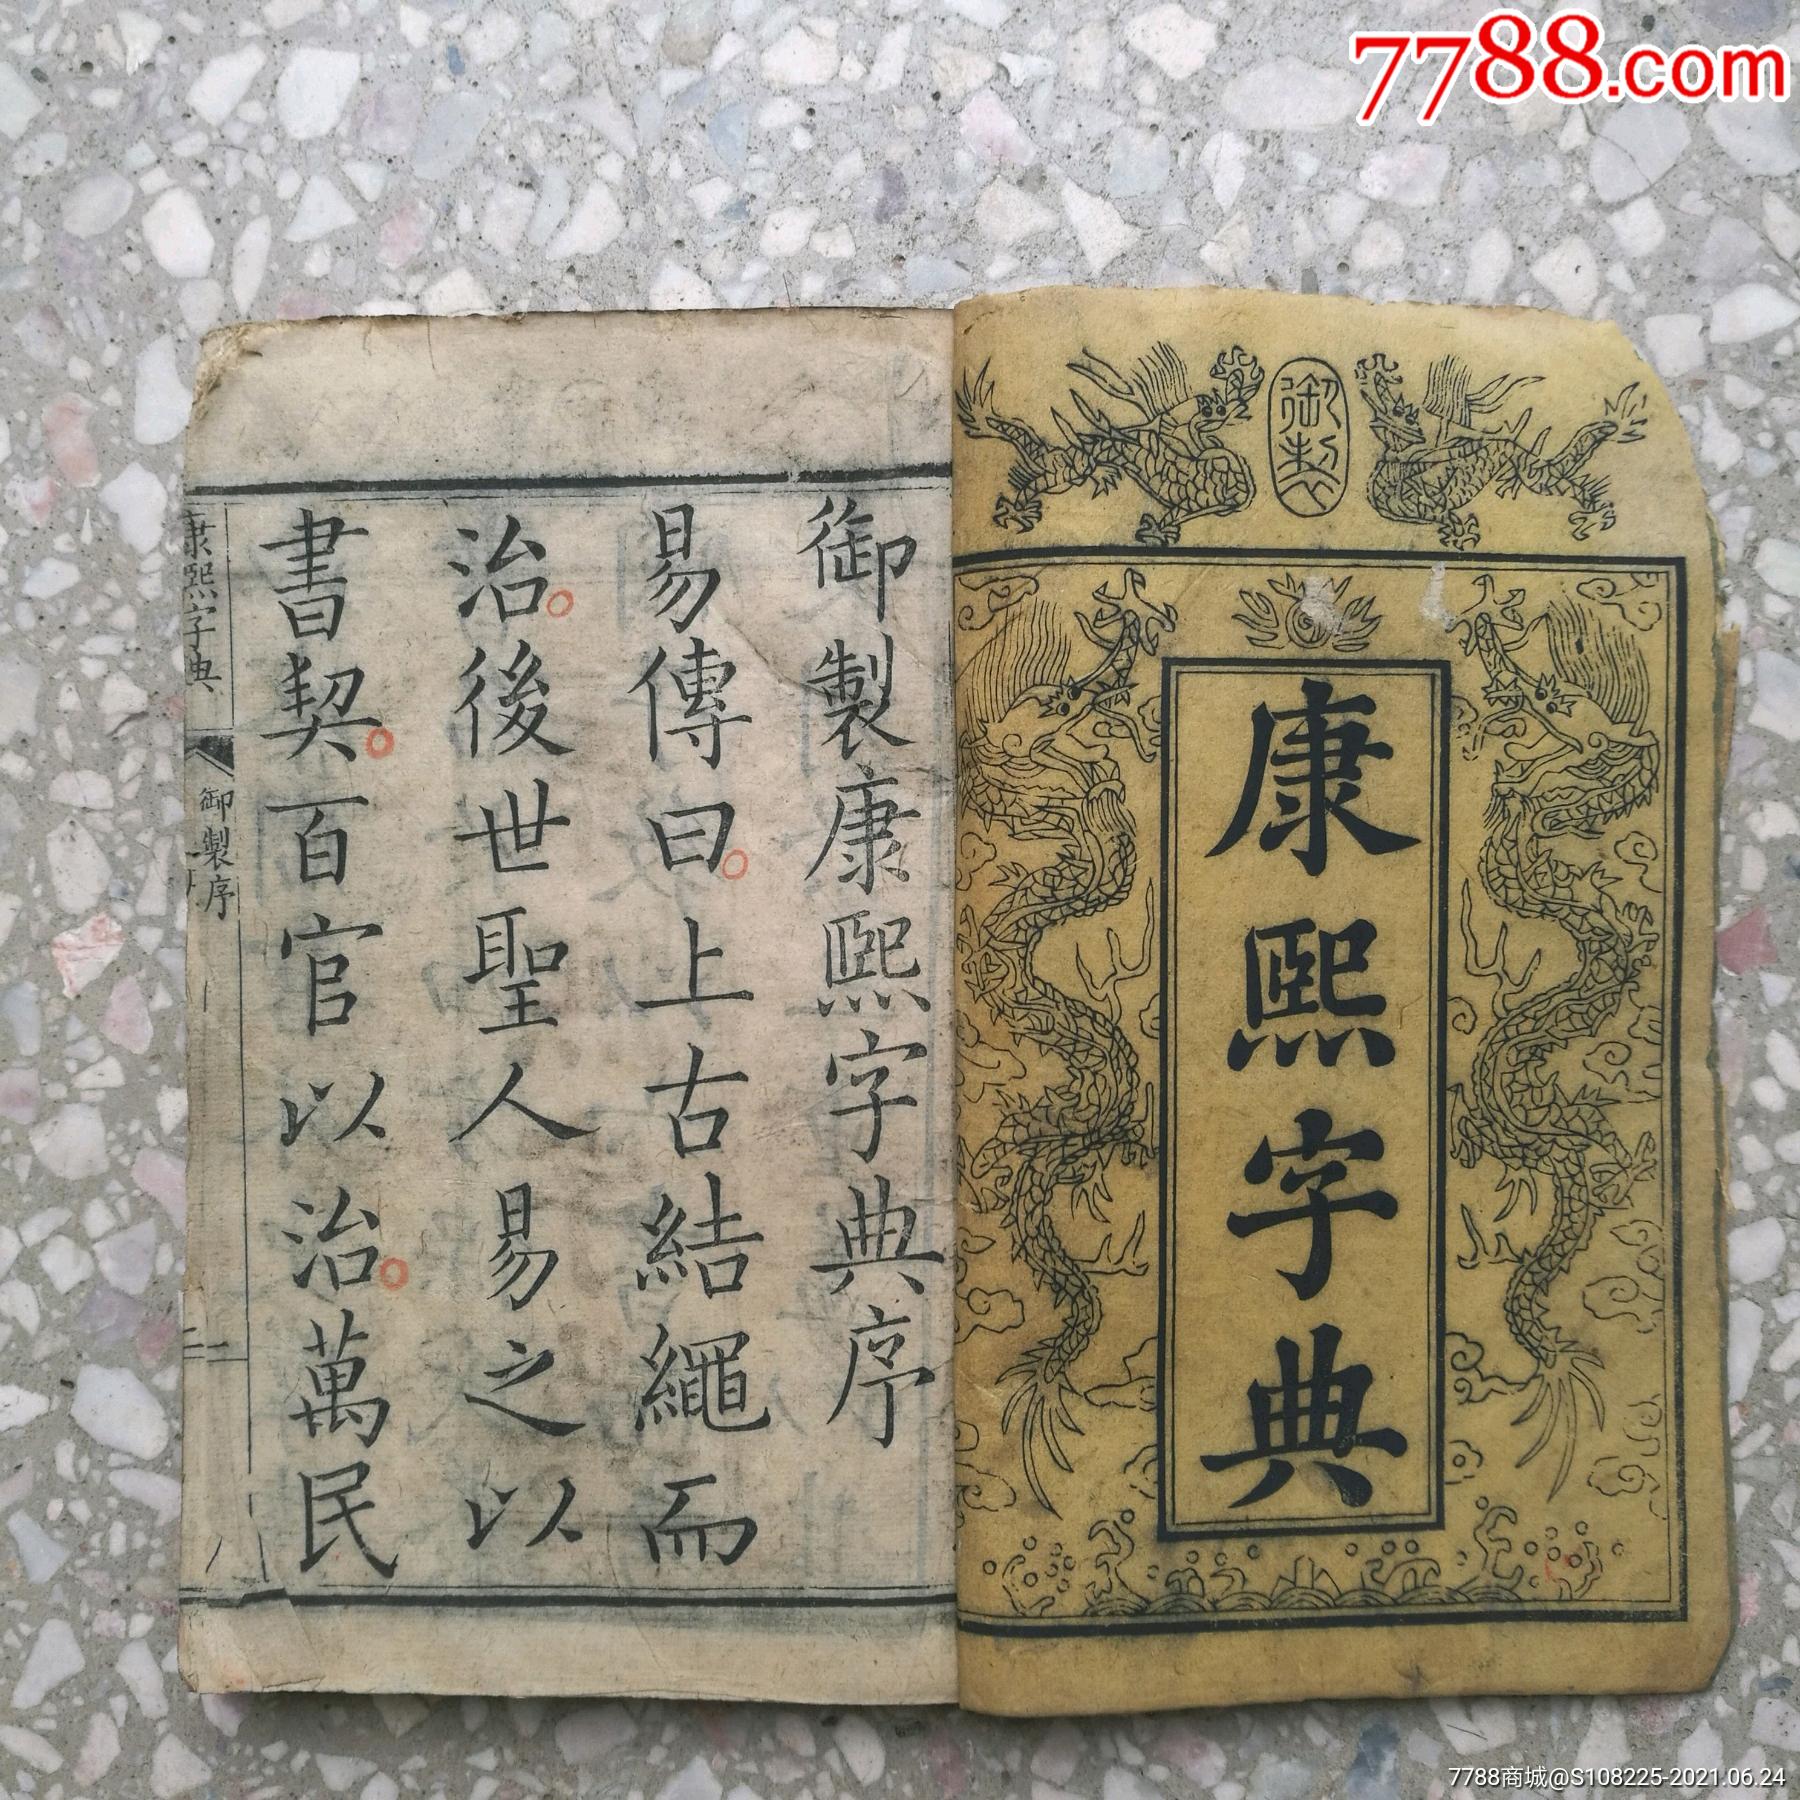 7788.com
御製
康熙字典
御製康熙字典序
易傳曰上古結繩而
治後世聖人易之以
書契百官以治萬民
康熙字典
御製序
7788商城@S108225-2021.06.24